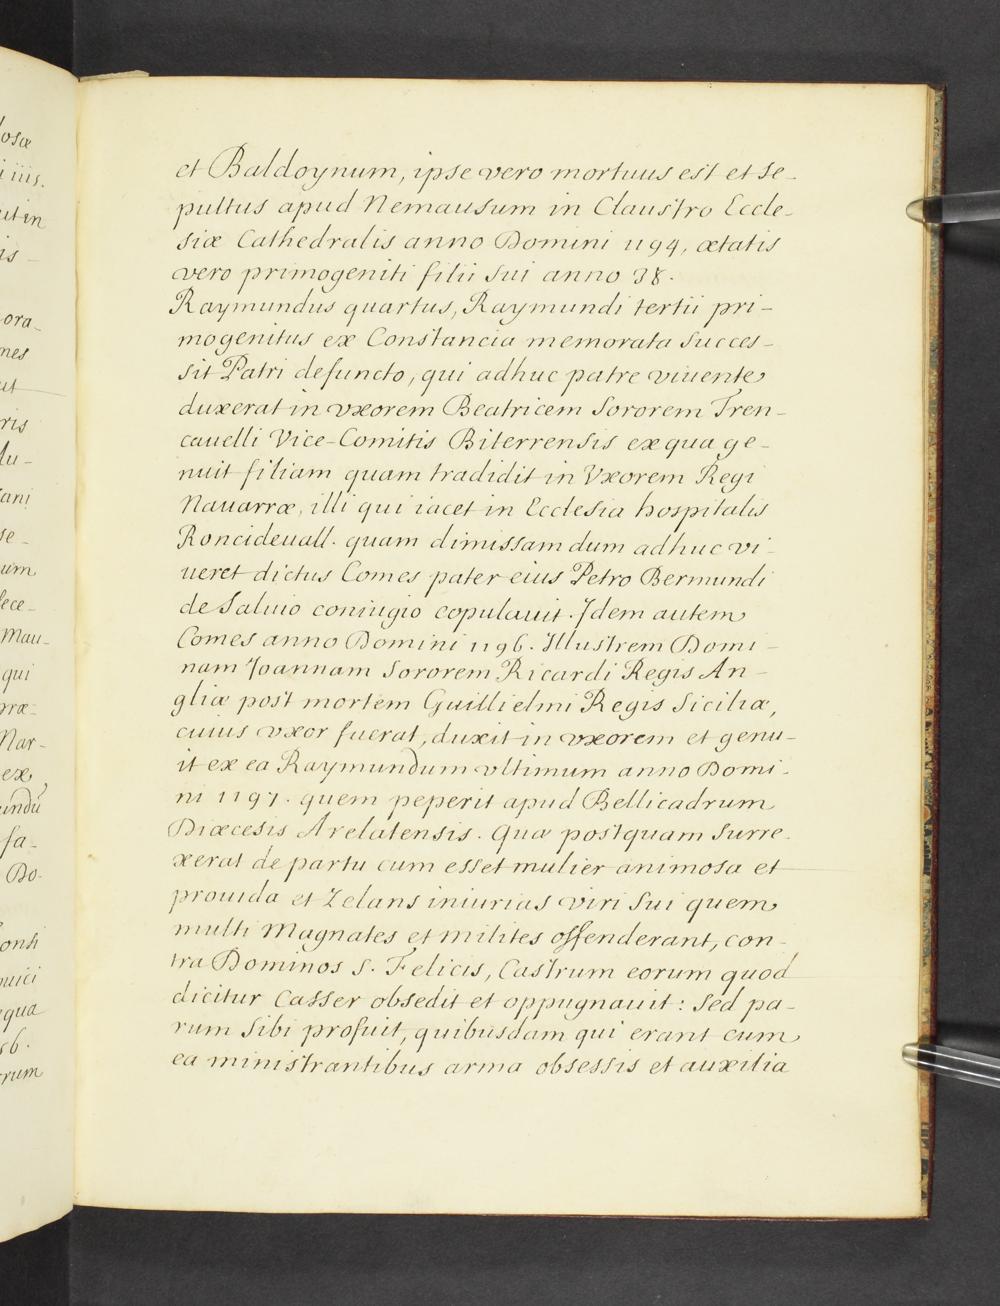 et Baldoynum, ipse vero mortuus est et se-
pultus apud Nemausum in Claustro Eccle-
siæ Cathedralis anno Domini 1194, ætatis
vero primogeniti filii sui anno 38.
Raymundus quartus, Raymundi tertii pri-
mogenitus ex Constancia memorata succes-
sit Patri defuncto, qui adhuc patre viuente
duxerat in vxorem Beatricem Sororem Tren-
cauelli Vice-Comitis Biterrensis ex qua ge-
nuit filiam quam tradidit in Vxorem Regi
Nauarræ, illi qui iacet in Ecclesia hospitalis
Roncideuall. quam dimissam dum adhuc vi-
ueret dictus Comes pater eius Petro Bermundi
de Saluio coniugio copulauit. Idem autem
Comes anno Domini 1196. Illustrem Domi-
nam Joannam Sororem Ricardi Regis An-
gliæ post mortem Guillielmi Regis Siciliæ,
cuius vxor fuerat, duxit in vxorem et genu-
it ex ea Raymundum vltimum anno Domi-
ni 1197. quem peperit apud Bellicadrum
Diæcesis Arelatensis. Quæ postquam surre-
xerat de partu cum esset mulier animosa et
prouida et Zelans iniurias viri sui quem
multi Magnates et milites offenderant, con-
tra Dominos S. Felicis, Castrum eorum quod
dicitur Casser obsedit et oppugnauit: Sed pa-
rum sibi profuit, quibusdam qui erant cum
ea ministrantibus arma obsessis et auxilia